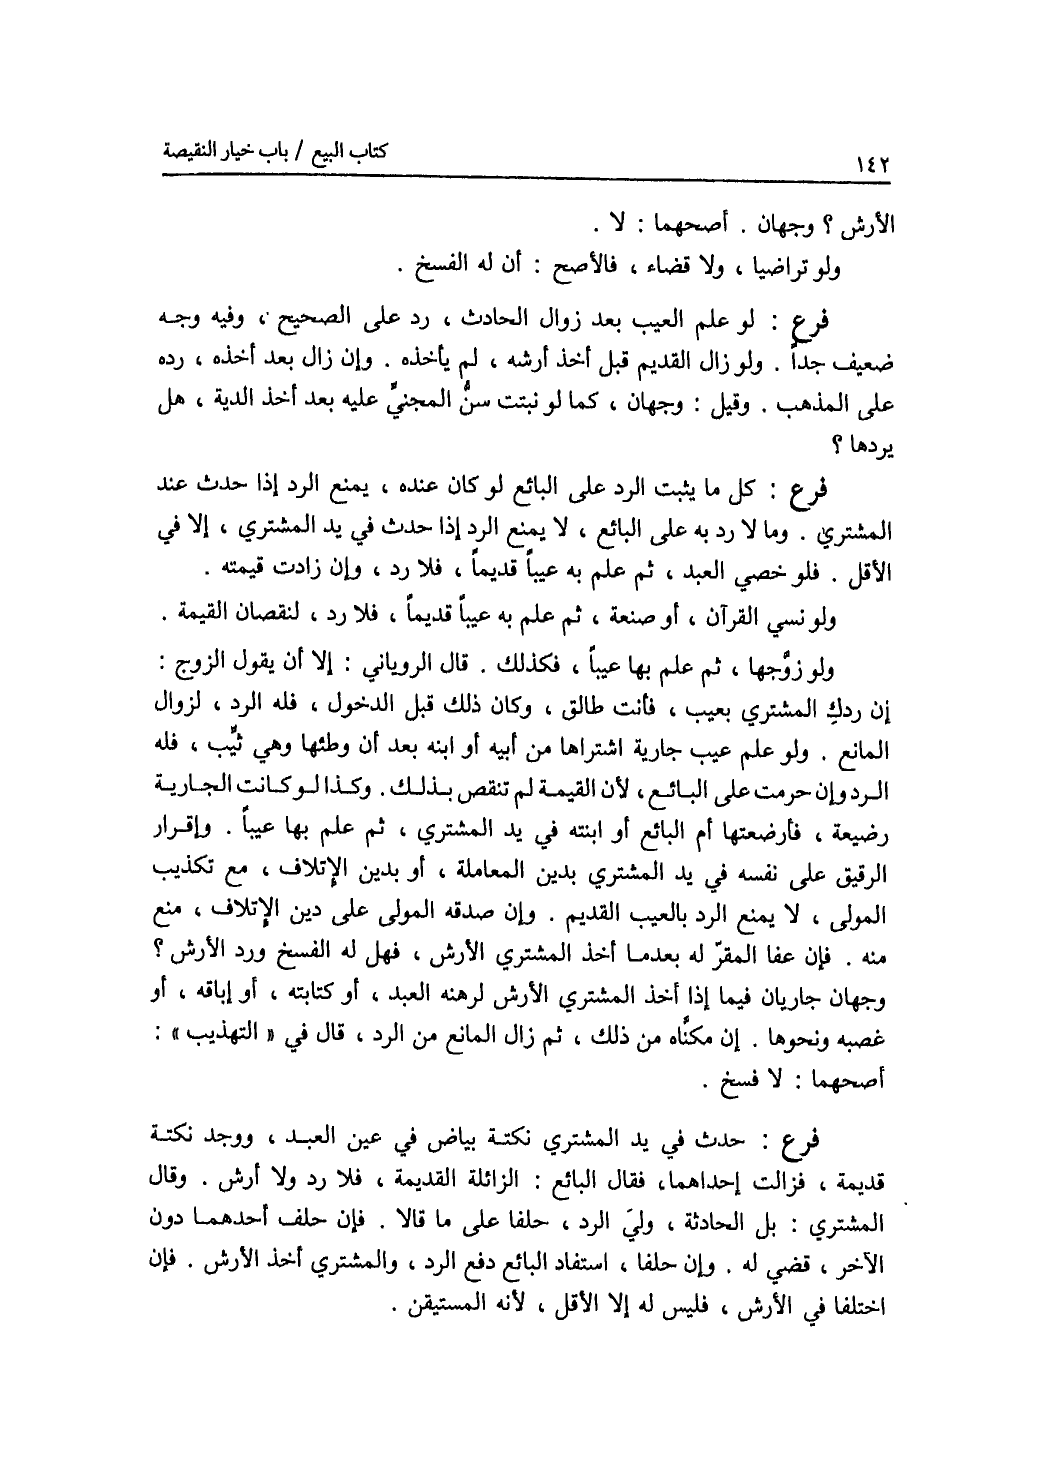 كتاب البيع / باب خيار النقيصة
١٤٢
الأرش ؟ وجهان . أصحهما : لا .
ولو تراضيا ، ولا قضاء ، فالأصح : أن له الفسخ .
فرع : لو علم العيب بعد زوال الحادث ، رد على الصحيح ، وفيه وجه
ضعيف جداً . ولو زال القديم قبل أخذ أرشه ، لم يأخذه . وإن زال بعد أخذه ، رده
على المذهب . وقيل : وجهان ، كما لو نبتت سنُّ المجنيِّ عليه بعد أخذ الدية ، هل
يردها ؟
فرع : كل ما يثبت الرد على البائع لو كان عنده ، يمنع الرد إذا حدث عند
المشتري . وما لا رد به على البائع ، لا يمنع الرد إذا حدث في يد المشتري ، إلا في
الأقل . فلو خصي العبد ، ثم علم به عيباً قديماً ، فلا رد ، وإن زادت قيمته .
ولو نسي القرآن ، أو صنعة ، ثم علم به عيباً قديماً ، فلا رد ، لنقصان القيمة .
ولو زوَّجها ، ثم علم بها عيباً ، فكذلك . قال الروياني : إلا أن يقول الزوج :
إن ردكِ المشتري بعيب ، فأنت طالق ، وكان ذلك قبل الدخول ، فله الرد ، لزوال
المانع . ولو علم عيب جارية اشتراها من أبيه أو ابنه بعد أن وطئها وهي ثيِّب ، فله
الرد وإن حرمت على البائع ، لأن القيمة لم تنقص بذلك . وكذا لو كانت الجارية
رضيعة ، فأرضعتها أم البائع أو ابنته في يد المشتري ، ثم علم بها عيباً . وإقرار
الرقيق على نفسه في يد المشتري بدين المعاملة ، أو بدين الإتلاف ، مع تكذيب
المولى ، لا يمنع الرد بالعيب القديم . وإن صدقه المولى على دين الإتلاف ، منع
منه . فإن عفا المقرّ له بعدما أخذ المشتري الأرش ، فهل له الفسخ ورد الأرش ؟
وجهان جاريان فيما إذا أخذ المشتري الأرش لرهنه العبد ، أو كتابته ، أو إباقه ، أو
غصبه ونحوها . إن مكنَّاه من ذلك ، ثم زال المانع من الرد ، قال في « التهذيب » :
أصحهما : لا فسخ .
فرع : حدث في يد المشتري نكتة بياض في عين العبد ، ووجد نكتة
قديمة ، فزالت إحداهما، فقال البائع : الزائلة القديمة ، فلا رد ولا أرش . وقال
المشتري : بل الحادثة ، وليَ الرد ، حلفا على ما قالا . فإن حلف أحدهما دون
الآخر ، قضي له . وإن حلفا ، استفاد البائع دفع الرد ، والمشتري أخذ الأرش . فإن
اختلفا في الأرش ، فليس له إلا الأقل ، لأنه المستيقن .